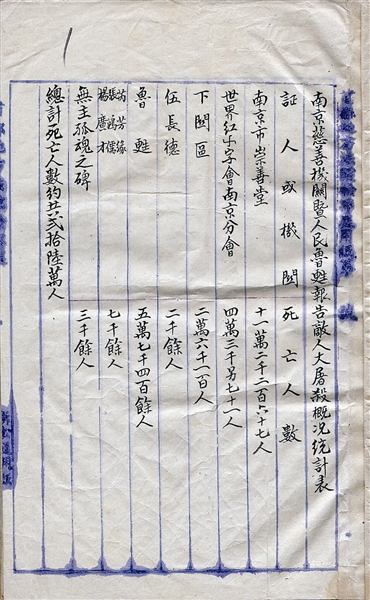 南京慈善機關暨人民魯甦報告敵人大屠殺概况統計表
証人或機関 死亡人數
南京市崇善堂 十一萬二千二百六十七人
世界紅卍字會南京分會 四萬三千另七十一人
下関區 二萬六千一百人
伍長德 二千餘人
魯甦 五萬七千四百餘人
芮芳緣
張鴻儒
楊廣才 七千餘人
無主孤魂之碑 三千餘人
總計死亡人數約 貳拾陸萬人